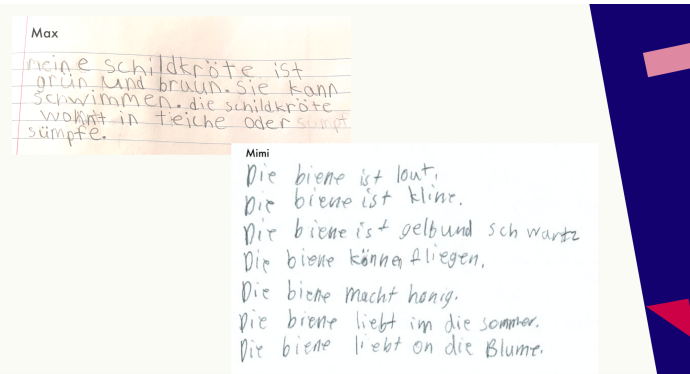 Max
meine schildkröte ist
grün und braun. sie kann
schwimmen. die schildkröte
wohnt in teiche oder sumpf
sümpfe.
Mimi
Die biene ist lout.
Die biene ist kline.
Die biene ist gelbund schwartz
Die biene können fliegen.
Die biene macht honig.
Die biene liebt im die sommer.
Die biene liebt on die Blume.